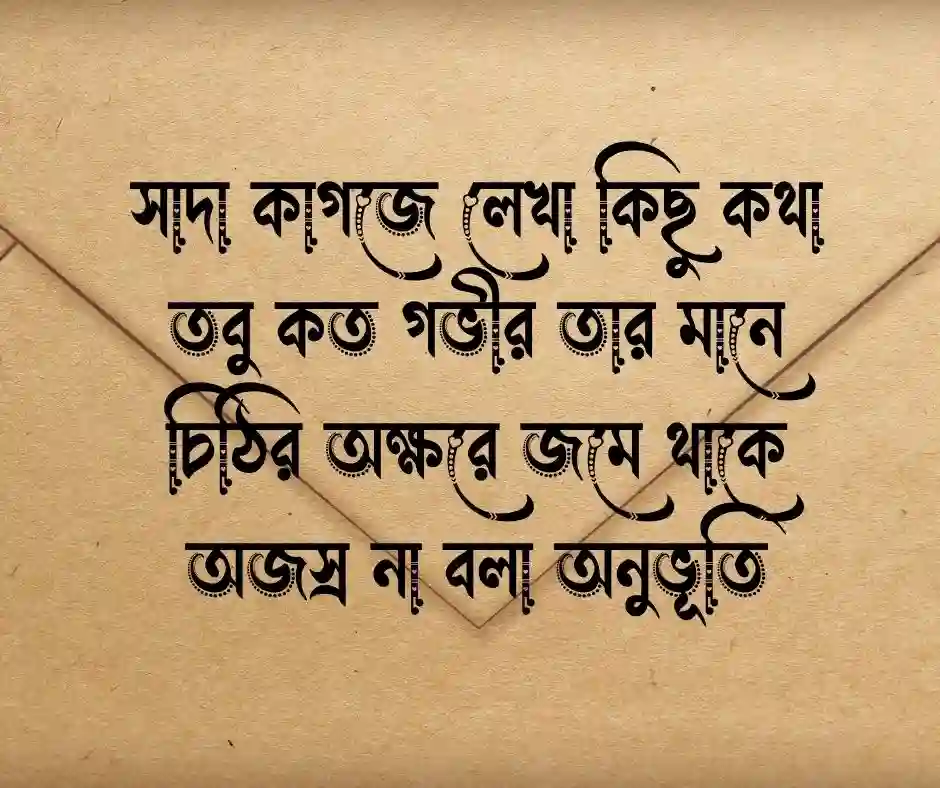 সাদা কাগজে লেখা কিছু কথা
তবু কত গভীর তার মানে
চিঠির অক্ষরে জমে থাকে
অজস্র না বলা অনুভূতি